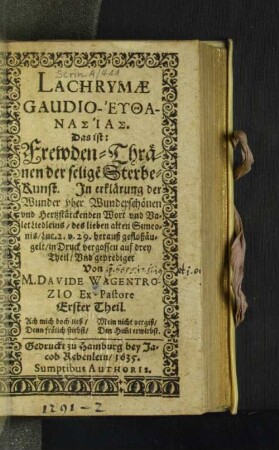 Scrin A/411
LACHRYMÆ
GAUDIO-ἘΥΘΑ-
ΝΑΣΊΑΣ.
Das ist:
Frewden-Thrä-
nen der selige Sterbe-
Kunst. In erklärung der
Wunder vber Wunderschönen
vnd Hertzstärckenden Wort vnd Va-
let Liedleins / des lieben alten Simeo-
nis / Luc. 2. v. 29. herauß gefloßsäu-
gelt / in Druck vergossen auf drey
Theil / Vnd geprediger
Von
M. DAVIDE WAGENTRO-
ZIO Ex-Pastore
Erster Theil.
Ach mich doch ließ / Mein nicht vergiß /
Denn frölich sterbst / Den Himl erwirbst.
Gedruckt zu Hamburg bey Ja-
cob Rebenlein / 1635.
Sumptibus AUTHORIS.
1291-2